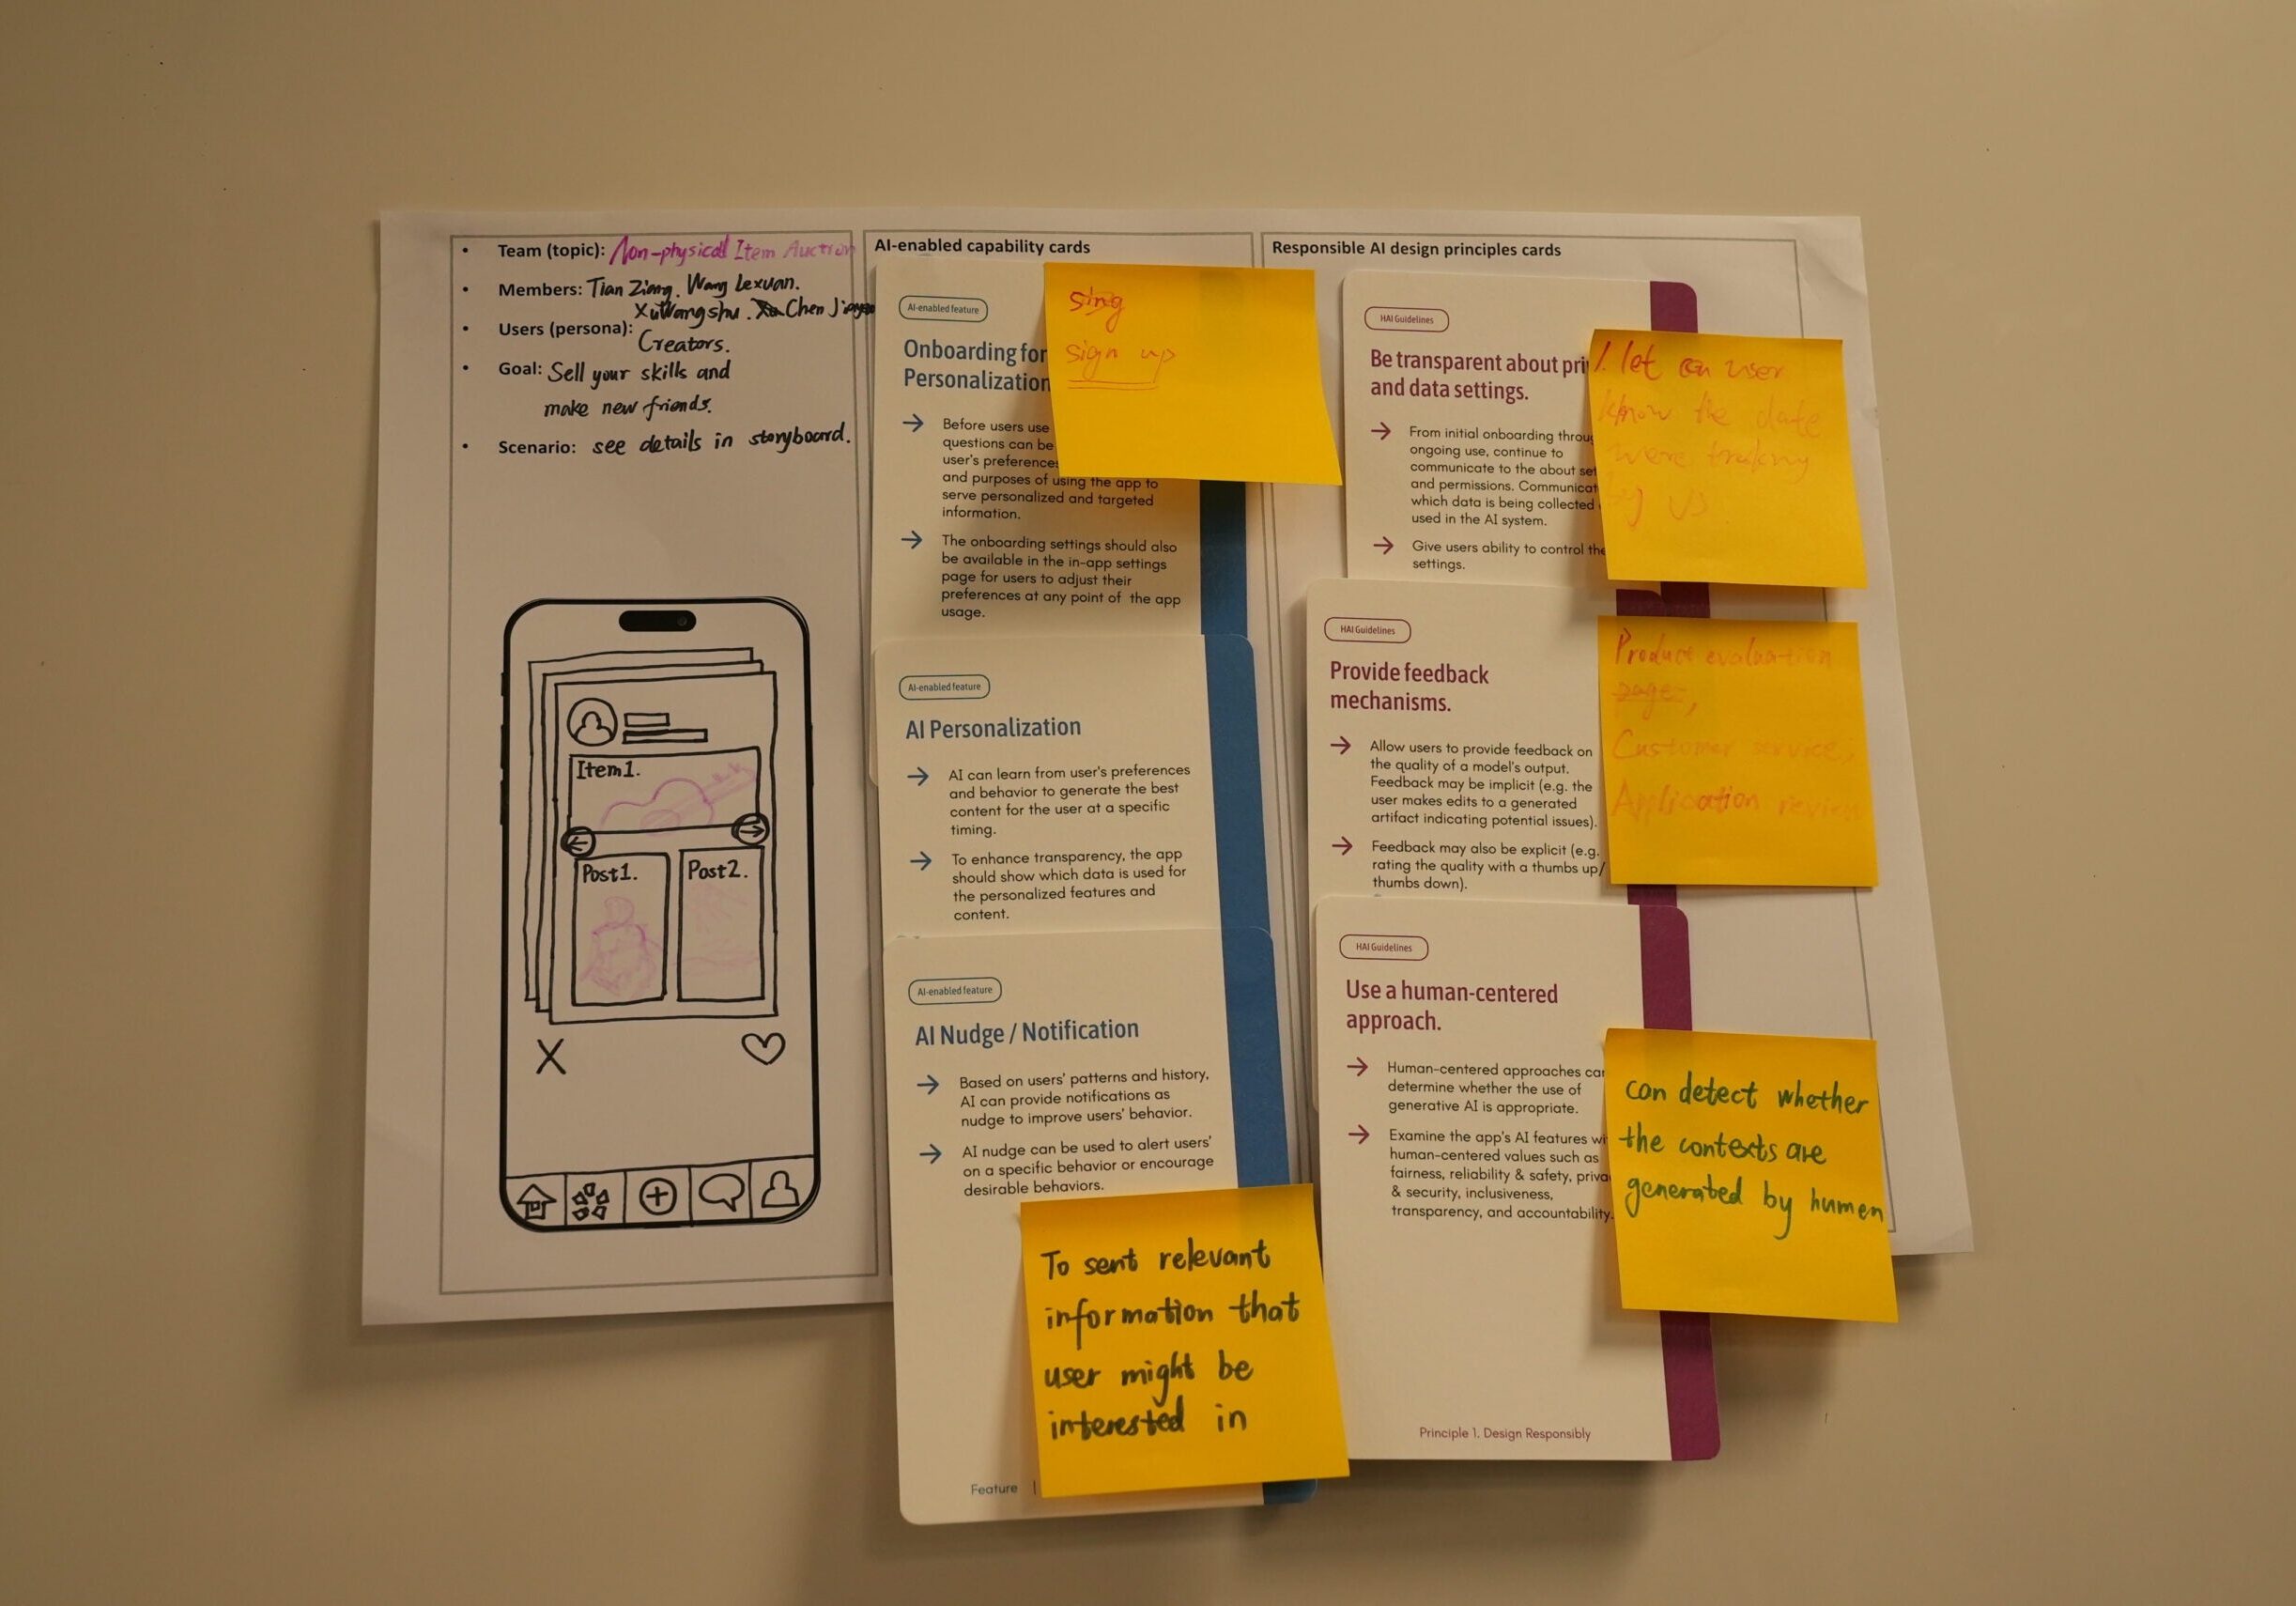 Team (topic): Non-physical Item Auction
Members: Tian Ziang. Wang Lexuan.
XuWangshu. Chen
Users (persona):
Creators.
Goal: Sell your skills and
make new friends.
Scenario: see details in storyboard.
Item1.
Post1.
Post2.
AI-enabled capability cards
AI-enabled feature
Onboarding for
Personalization
Before users use
questions can be
user's preference
and purposes of using the app to
serve personalized and targeted
information.
The onboarding settings should also
be available in the in-app settings
page for users to adjust their
preferences at any point of the app
usage.
sing
sign up
AI-enabled feature
AI Personalization
AI can learn from user's preferences
and behavior to generate the best
content for the user at a specific
timing.
To enhance transparency, the app
should show which data is used for
the personalized features and
content.
AI-enabled feature
AI Nudge / Notification
Based on users' patterns and history,
AI can provide notifications as
nudge to improve users' behavior.
AI nudge can be used to alert users'
on a specific behavior or encourage
desirable behaviors.
To sent relevant
information that
user might be
interested in
Feature |
Responsible AI design principles cards
HAI Guidelines
Be transparent about pri
and data settings.
From initial onboarding throu
ongoing use, continue to
communicate to the about set
and permissions. Communicat
which data is being collected
used in the AI system.
Give users ability to control the
settings.
1. let user
know the date
were traking
by us
HAI Guidelines
Provide feedback
mechanisms.
Allow users to provide feedback on
the quality of a model's output.
Feedback may be implicit (e.g. the
user makes edits to a generated
artifact indicating potential issues).
Feedback may also be explicit (e.g.
rating the quality with a thumbs up/
thumbs down).
Product evaluation
page,
Customer service,
Application review
HAI Guidelines
Use a human-centered
approach.
Human-centered approaches can
determine whether the use of
generative AI is appropriate.
Examine the app's AI features wi
human-centered values such as
fairness, reliability & safety, priva
& security, inclusiveness,
transparency, and accountability.
can detect whether
the contexts are
generated by humen
Principle 1. Design Responsibly